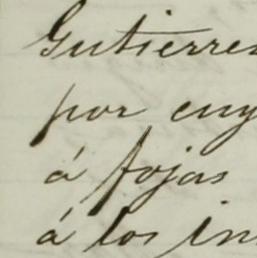 Gutierrez
por cuy
á fojas
á los in